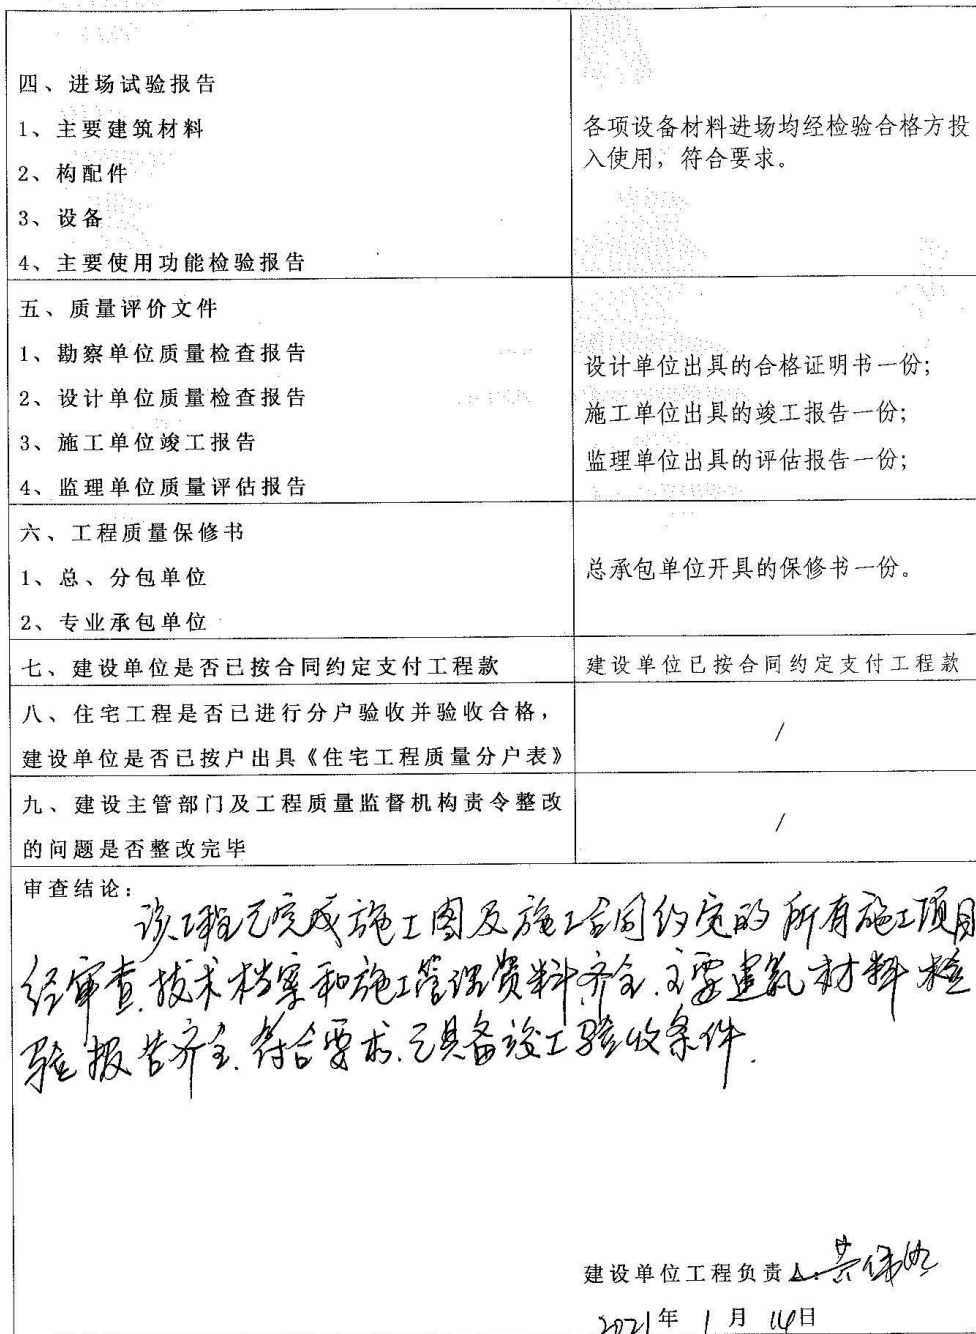 四、进场试验报告
1、主要建筑材料
2、构配件
3、设备
4、主要使用功能检验报告
各项设备材料进场均经检验合格方投
入使用，符合要求。
五、质量评价文件
1、勘察单位质量检查报告
2、设计单位质量检查报告
3、施工单位竣工报告
4、监理单位质量评估报告
设计单位出具的合格证明书一份；
施工单位出具的竣工报告一份；
监理单位出具的评估报告一份；
六、工程质量保修书
1、总、分包单位
2、专业承包单位
总承包单位开具的保修书一份。
七、建设单位是否已按合同约定支付工程款
建设单位已按合同约定支付工程款
八、住宅工程是否已进行分户验收并验收合格，
建设单位是否已按户出具《住宅工程质量分户表》
/
九、建设主管部门及工程质量监督机构责令整改
的问题是否整改完毕
/
审查结论：
该工程已完成施工图及施工合同约定的所有施工项目
经审查.技术档案和施工管理资料齐全.主要建筑材料检
验报告齐全.符合要求.已具备竣工验收条件.
建设单位工程负责人：
2021年1月14日